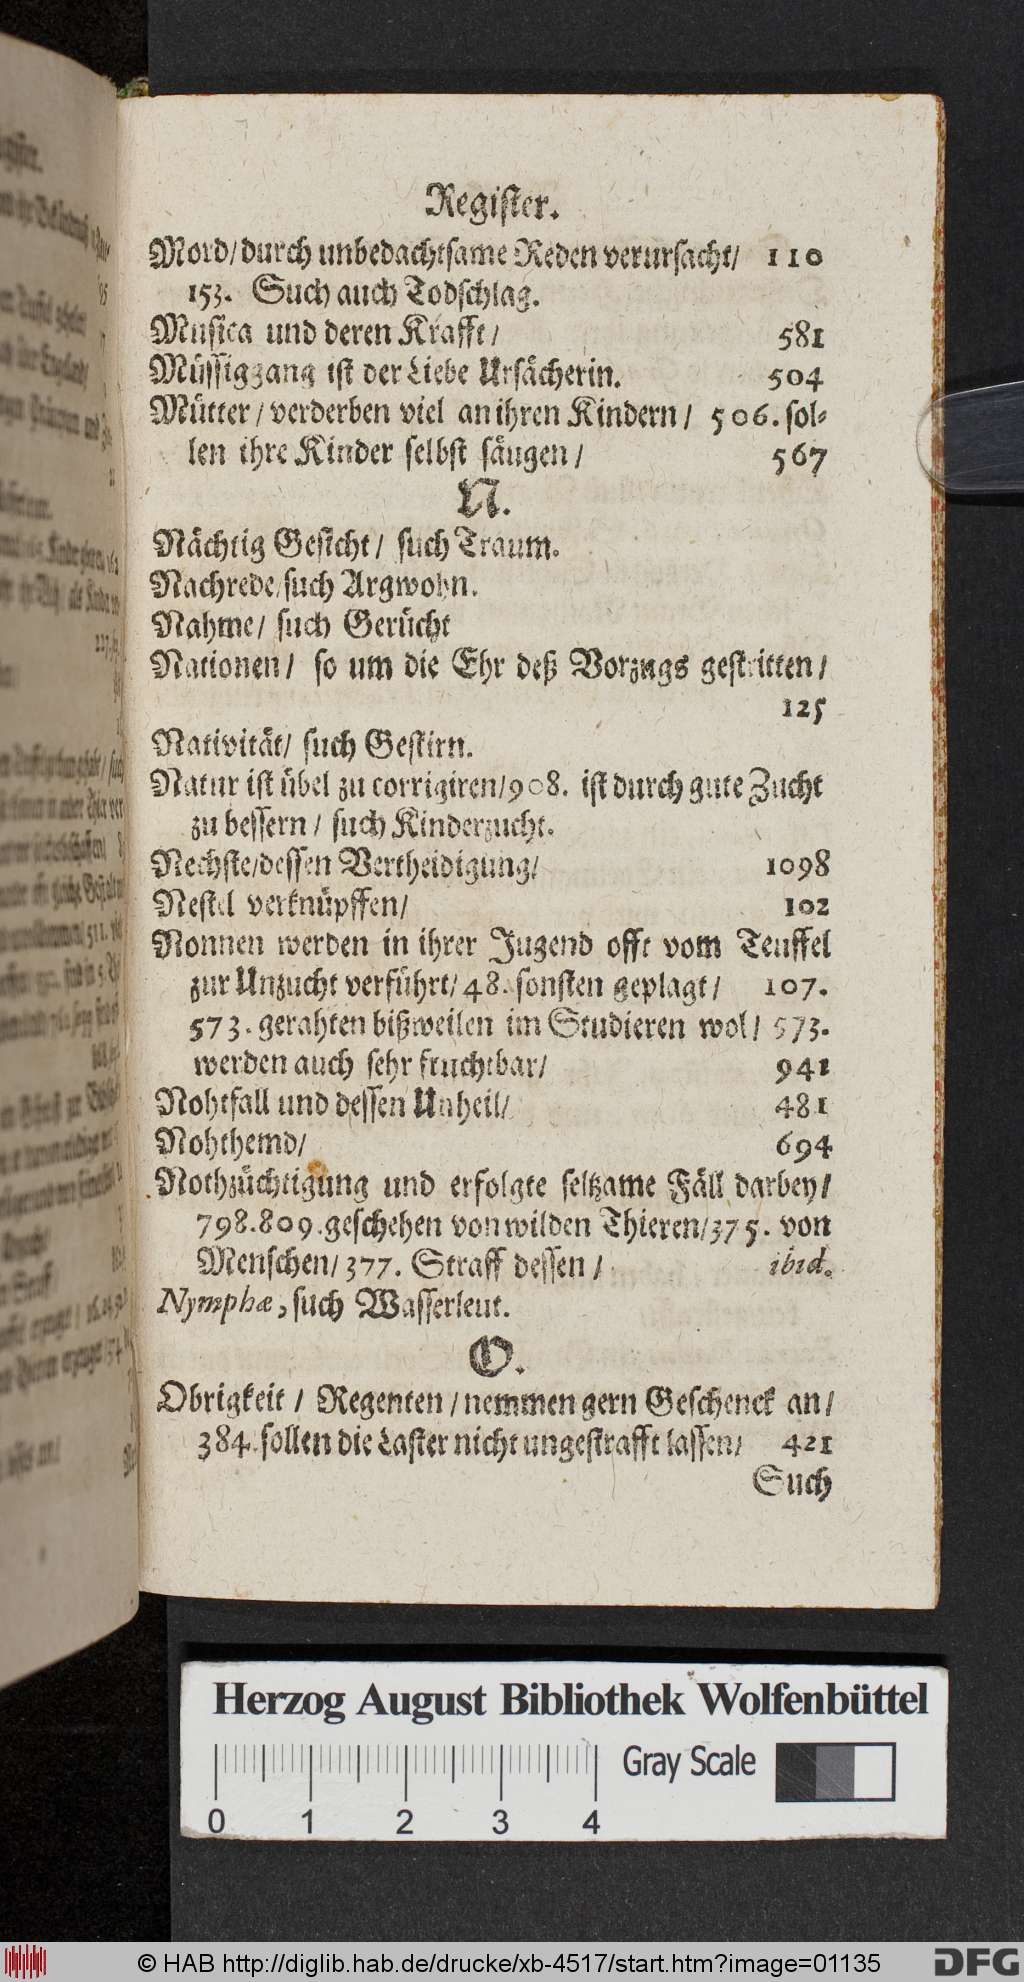 Register.
Mord/durch unbedachtsame Reden verursacht/ 110
153. Such auch Todschlag.
Musica und deren Krafft/ 581
Müssiggang ist der Liebe Ursächerin. 504
Mütter/ verderben viel an ihren Kindern/ 506. sol-
len ihre Kinder selbst säugen/ 567
N.
Nächtig Gesicht/ such Traum.
Nachrede/such Argwohn.
Nahme/ such Gerücht
Nationen/ so um die Ehr deß Vorzugs gestritten/
125
Nativität/ such Gestirn.
Natur ist übel zu corrigiren/908. ist durch gute Zucht
zu bessern/ such Kinderzucht.
Nechste/dessen Vertheidigung/ 1098
Nestel verknüpffen/ 102
Nonnen werden in ihrer Jugend offt vom Teuffel
zur Unzucht verführt/48. sonsten geplagt/ 107.
573. gerahten bißweilen im Studieren wol/ 573.
werden auch sehr fruchtbar/ 941
Nohtfall und dessen Unheil/ 481
Nohthemd/ 694
Nothzüchtigung und erfolgte seltzame Fäll darbey/
798.809.geschehen von wilden Thieren/375. von
Menschen/377. Straff dessen/ ibid.
Nymphæ, such Wasserleut.
O.
Obrigkeit/ Regenten/nemmen gern Geschenck an/
384.sollen die Laster nicht ungestrafft lassen/ 421
Such
Herzog August Bibliothek Wolfenbüttel
Gray Scale
0 1 2 3 4
© HAB http://diglib.hab.de/drucke/xb-4517/start.htm?image=01135
DFG